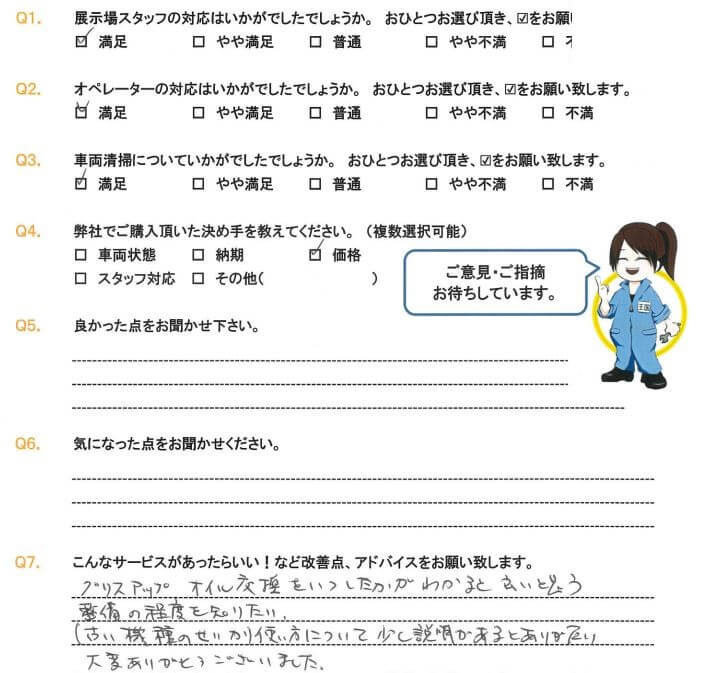 Q1. 展示場スタッフの対応はいかがでしたでしょうか。 おひとつお選び頂き、☑をお願
☑ 満足 □ やや満足 □ 普通 □ やや不満 □
Q2. オペレーターの対応はいかがでしたでしょうか。 おひとつお選び頂き、☑をお願い致します。
☑ 満足 □ やや満足 □ 普通 □ やや不満 □ 不満
Q3. 車両清掃についていかがでしたでしょうか。 おひとつお選び頂き、☑をお願い致します。
☑ 満足 □ やや満足 □ 普通 □ やや不満 □ 不満
Q4. 弊社でご購入頂いた決め手を教えてください。（複数選択可能）
□ 車両状態 □ 納期 ☑ 価格
□ スタッフ対応 □ その他( )
ご意見・ご指摘
お待ちしています。
Q5. 良かった点をお聞かせ下さい。
Q6. 気になった点をお聞かせください。
Q7. こんなサービスがあったらいい！など改善点、アドバイスをお願い致します。
グリスアップ オイル交換をいつしたかがわかると良いと思う
整備の程度を知りたい。
(古い機種のせいか)使い方について少し説明があるとありが
大変ありがとうございました。